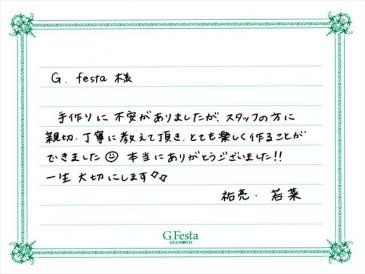 G. festa 様
手作りに不安がありましたが、スタッフの方に
親切、丁寧に教えて頂き、とても楽しく作ることが
できました☺ 本当にありがとうございました!!
一生大切にします♡♡
祐亮・若菜
G.Festa
DIAMOND